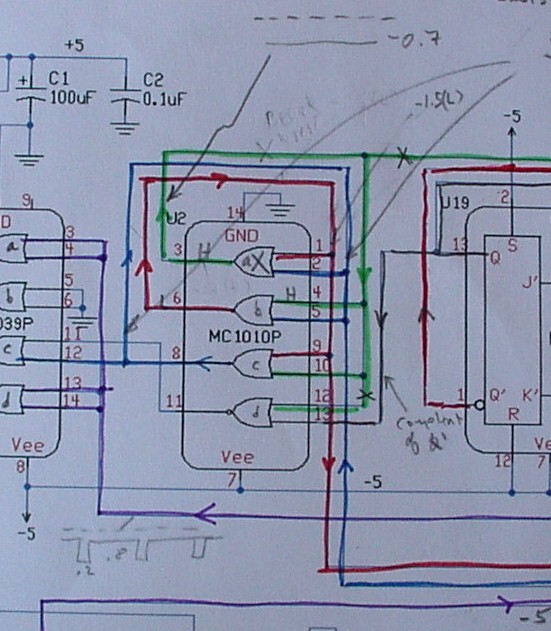 -0.7
+5
+
C1
100uF
C2
0.1uF
-1.5(L)
X
X
-5
9
D
U2
14
GND
U19
2
S
3
4
a
3
H
a X
1
2
13
Q
J'
5
6
b
6
b
H
4
5
039P
MC1010P
11
12
c
8
c
9
10
13
14
d
11
d
12
13
X
1
Q'
K'
R
of Q'
Vee
8
Vee
7
-5
12
Ve
7
-5
.2
.8
-5